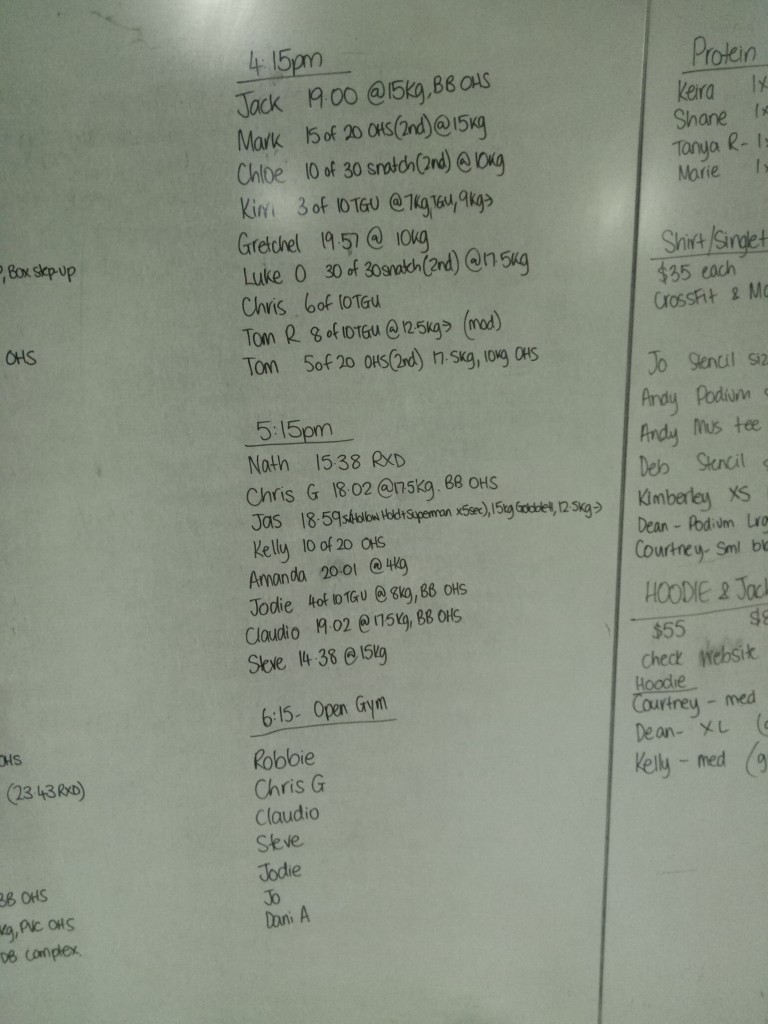 4:15pm
Jack 19.00 @15kg, BB OHS
Mark 15 of 20 OHS(2nd)@15kg
Chloe 10 of 30 snatch(2nd) @10kg
Kirri 3 of 10TGU @7kgTGU, 9kg→
Gretchel 19.57 @ 10kg
Luke O 30 of 30snatch(2nd) @17.5kg
Chris 6of 10TGU
Tom R 8 of 10TGU @12.5kg→ (mod)
Tom 5of 20 OHS(2nd) 17.5kg, 10kg OHS
5:15pm
Nath 15.38 RXD
Chris G 18.02 @17.5kg. BB OHS
Jas 18.59 (Hollow Hold+Superman x5sec), 15kg 12.5kg→
Kelly 10 of 20 OHS
Amanda 20.01 @4kg
Jodie 4of 10TGU @8kg, BB OHS
Claudio 19.02 @17.5kg, BB OHS
Steve 14.38 @15kg
6:15- Open Gym
Robbie
Chris G
Claudio
Steve
Jodie
Jo
Dani A
, Box step-up
OHS
OHS
(23.43RXD)
BB OHS
kg, PVC OHS
DB complex.
Protein
Keira 1x
Shane 1x
Tanya R- 1x
Marie 1x
Shirt/Singlet
$35 each
CrossFit & Mo
Jo Stencil siz
Andy Podium
Andy Mus tee
Deb Stencil
Kimberley XS
Dean - Podium Lrg
Courtney- Sml bl
HOODIE & Jack
$55 $8
check website
Hoodie
Courtney - med
Dean- XL (
Kelly - med (g